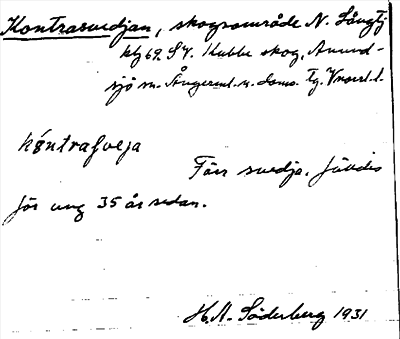 Kontrasvedjan, skogsområde N. Långtj
kbg 69. S4. Kubbe skog, Anund-
sjö sn. Ångerml. n. doms. Tg. Vnorrl. l.
kóntrafveja
Förr svedja, fälldes
för ung 35 år sedan.
H. A. Söderberg 1931